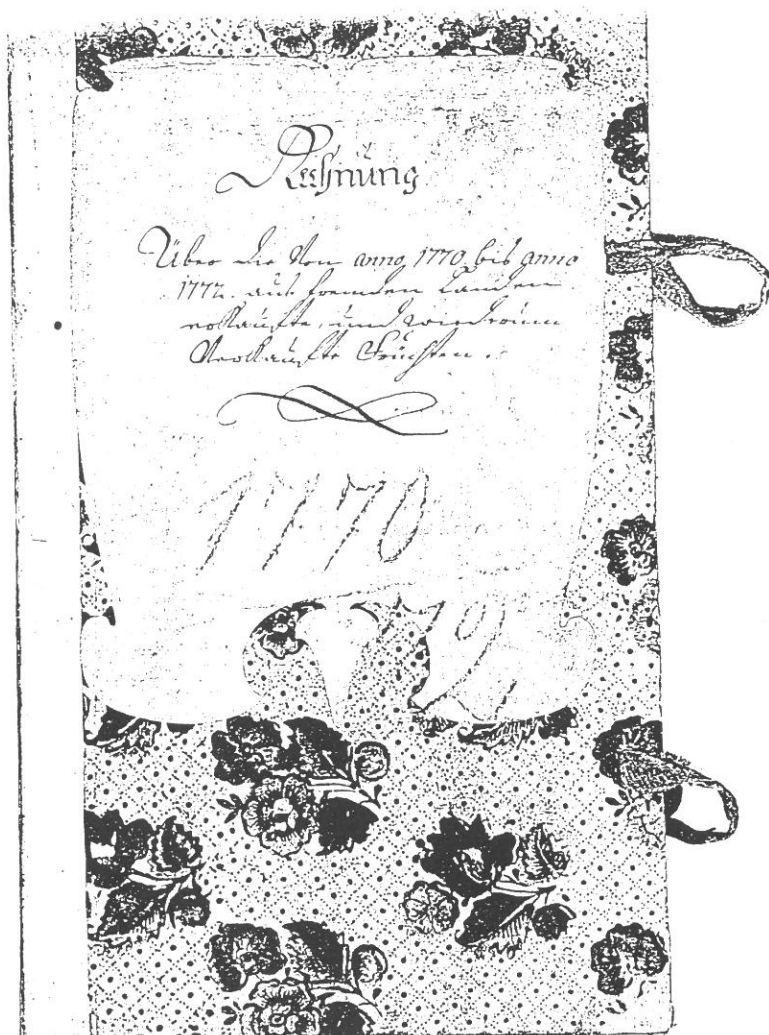 Rechnung
Über die Von anno 1770 bis anno
1772. aus fremden Landen
erkaufte, und wiedrum
Verkaufte Früchten.
1770